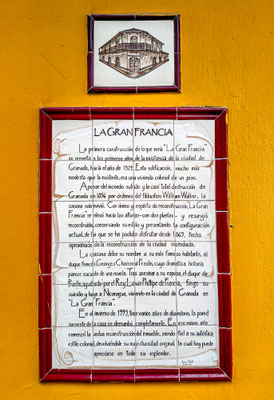 LA GRAN FRANCIA
La primera construcción de lo que sería "La Gran Francia"
se remonta a los primeros años de la existencia de la ciudad de
Granada, hacia el año de 1524. Esta edificación, mucho más
modesta que la existente, era una vivienda colonial de un piso.
A pesar del incendio sufrido y la casi total destrucción de
Granada en 1856 por órdenes del filibustero William Walker, la
casona sobrevivió. Con ánimo y espíritu de reconstrucción, La Gran
Francia se elevó hacia las alturas -con dos plantas- y resurgió
reconstruida, conservando su estilo y presentando la configuración
actual, de la que se ha podido disfrutar desde 1867, fecha
aproximada de la reconstrucción de la ciudad incendiada.
La casona debe su nombre a su más famoso habitante, el
duque francés Georges Choiseul Praslin, cuya dramática historia
parece sacada de una novela. Tras asesinar a su esposa, el duque de
Praslin, ayudado por el Rey Louis Philipe de Francia, finge su
suicidio y huye a Nicaragua, viviendo en la ciudad de Granada en
"La Gran Francia".
En el invierno de 1999, tras varios años de abandono, la pared
suroeste de la casa se derrumbó completamente. En ese mismo año
comenzó la ardua reconstrucción del inmueble, siendo fiel a su auténtico
estilo colonial, devolviéndole su majestuosidad original, la cual hoy puede
apreciarse en todo su esplendor.